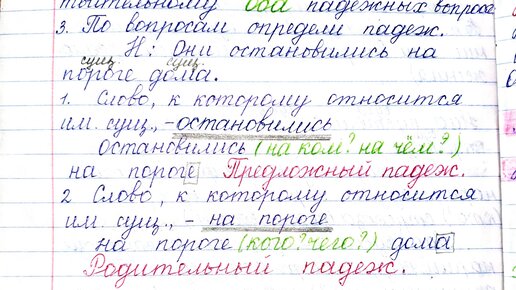 тоительному два падежных вопроса
3. По вопросам определи падеж.
Н: Они остановились на
сущ. сущ.
пороге дома.
1. Слово, к которому относится
им. сущ., - остановились
остановились (на ком? на чём?)
на пороге Предложный падеж.
2 Слово, к которому относится
им. сущ., - на пороге
на пороге (кого? чего?) дома
Родительный падеж.